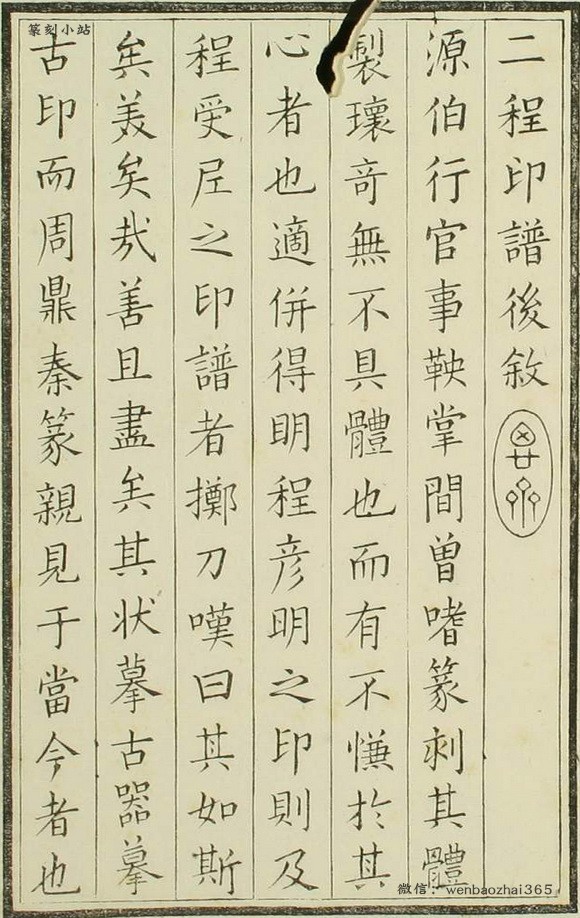 篆刻小站
二程印譜後敘
源伯行官事鞅掌間曾嗜篆刺其體
製瓌奇無不具體也而有不慊於其
心者也適併得明程彦明之印則及
程受尼之印譜者擲刀嘆曰其如斯
矣美矣哉善且盡矣其状摹古器摹
古印而周鼎秦篆親見于當今者也
微信：wenbaozhai365